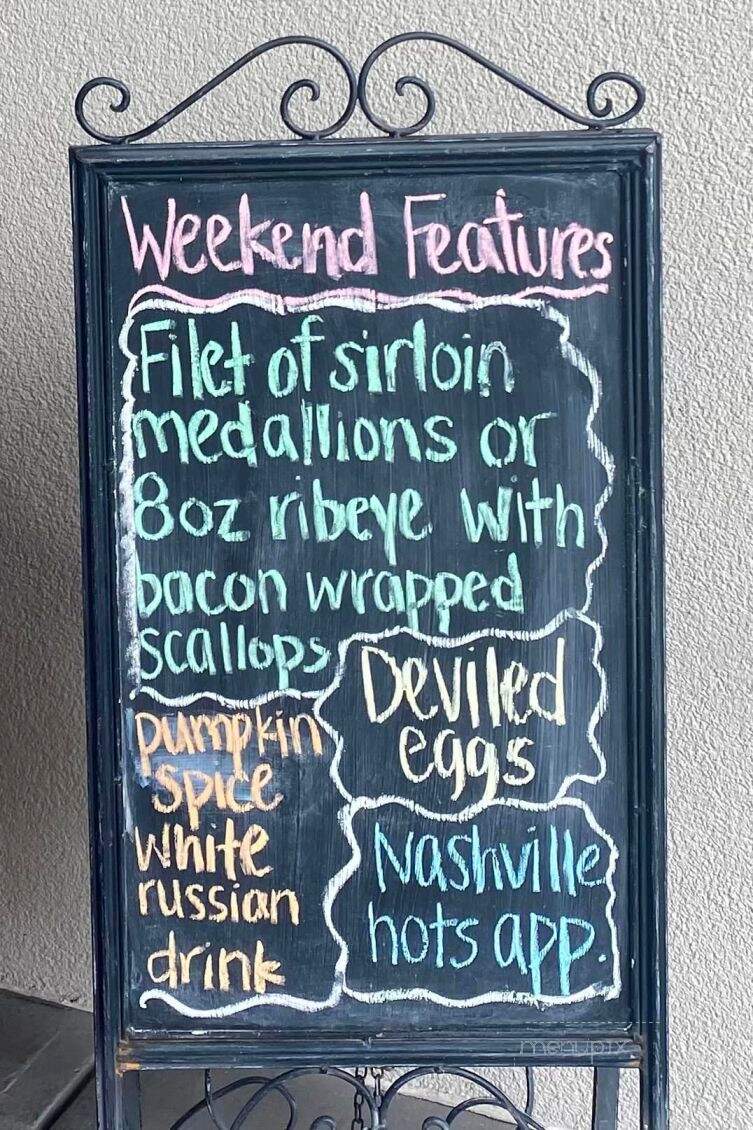 Weekend Features
Filet of sirloin
medallions or
8oz ribeye with
bacon wrapped
scallops
Deviled
eggs
pumpkin
spice
white
russian
drink
Nashville
hots app.
menupix